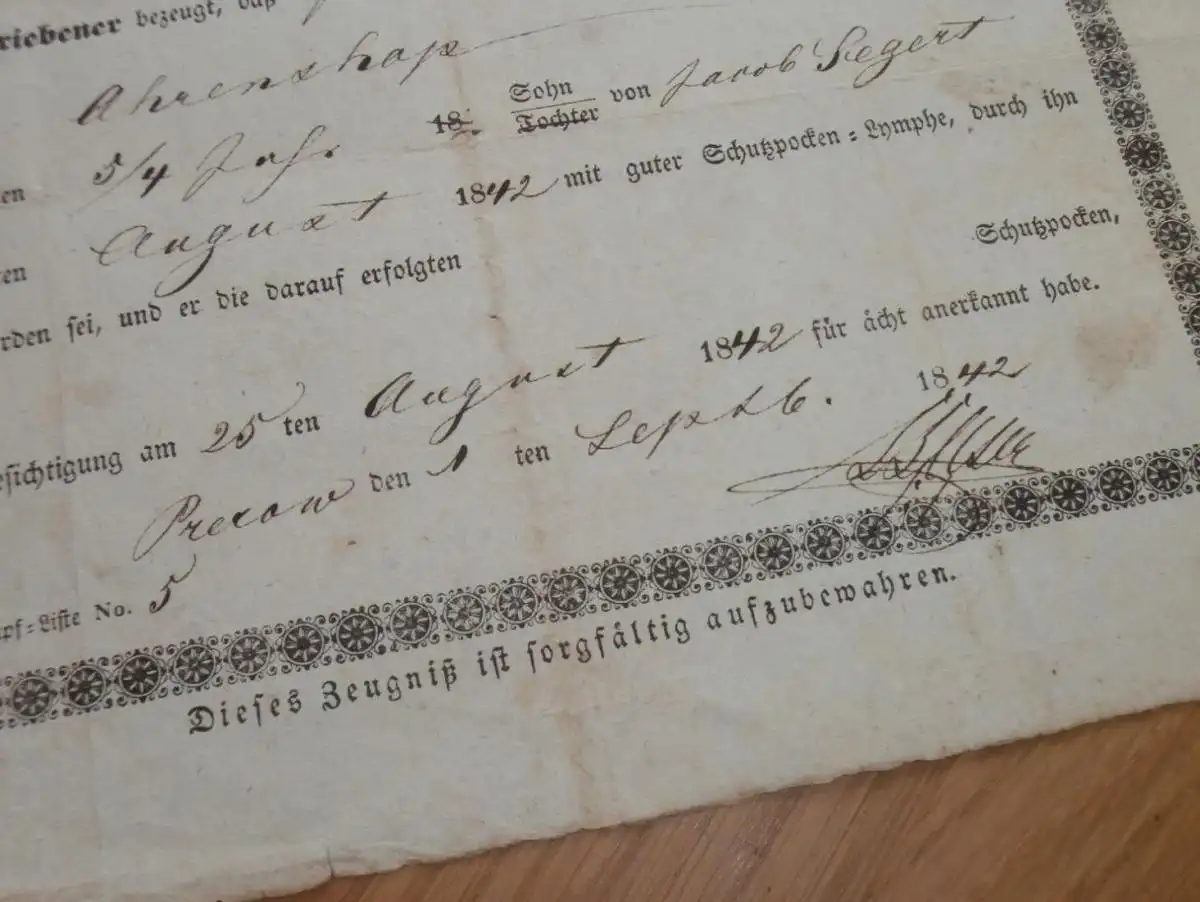 riebener bezeugt, daß
Ahrenshop
en 5/4 Jahr 18 Sohn Tochter von Jacob Siegert
ten August 1842 mit guter Schutzpocken-Lymphe, durch ihn
rden sei, und er die darauf erfolgten Schutzpocken,
esichtigung am 25 ten August 1842 für ächt anerkannt habe.
Prerow den 1 ten Septb. 1842
pf-Liste No. 5
Dieses Zeugniß ist sorgfältig aufzubewahren.